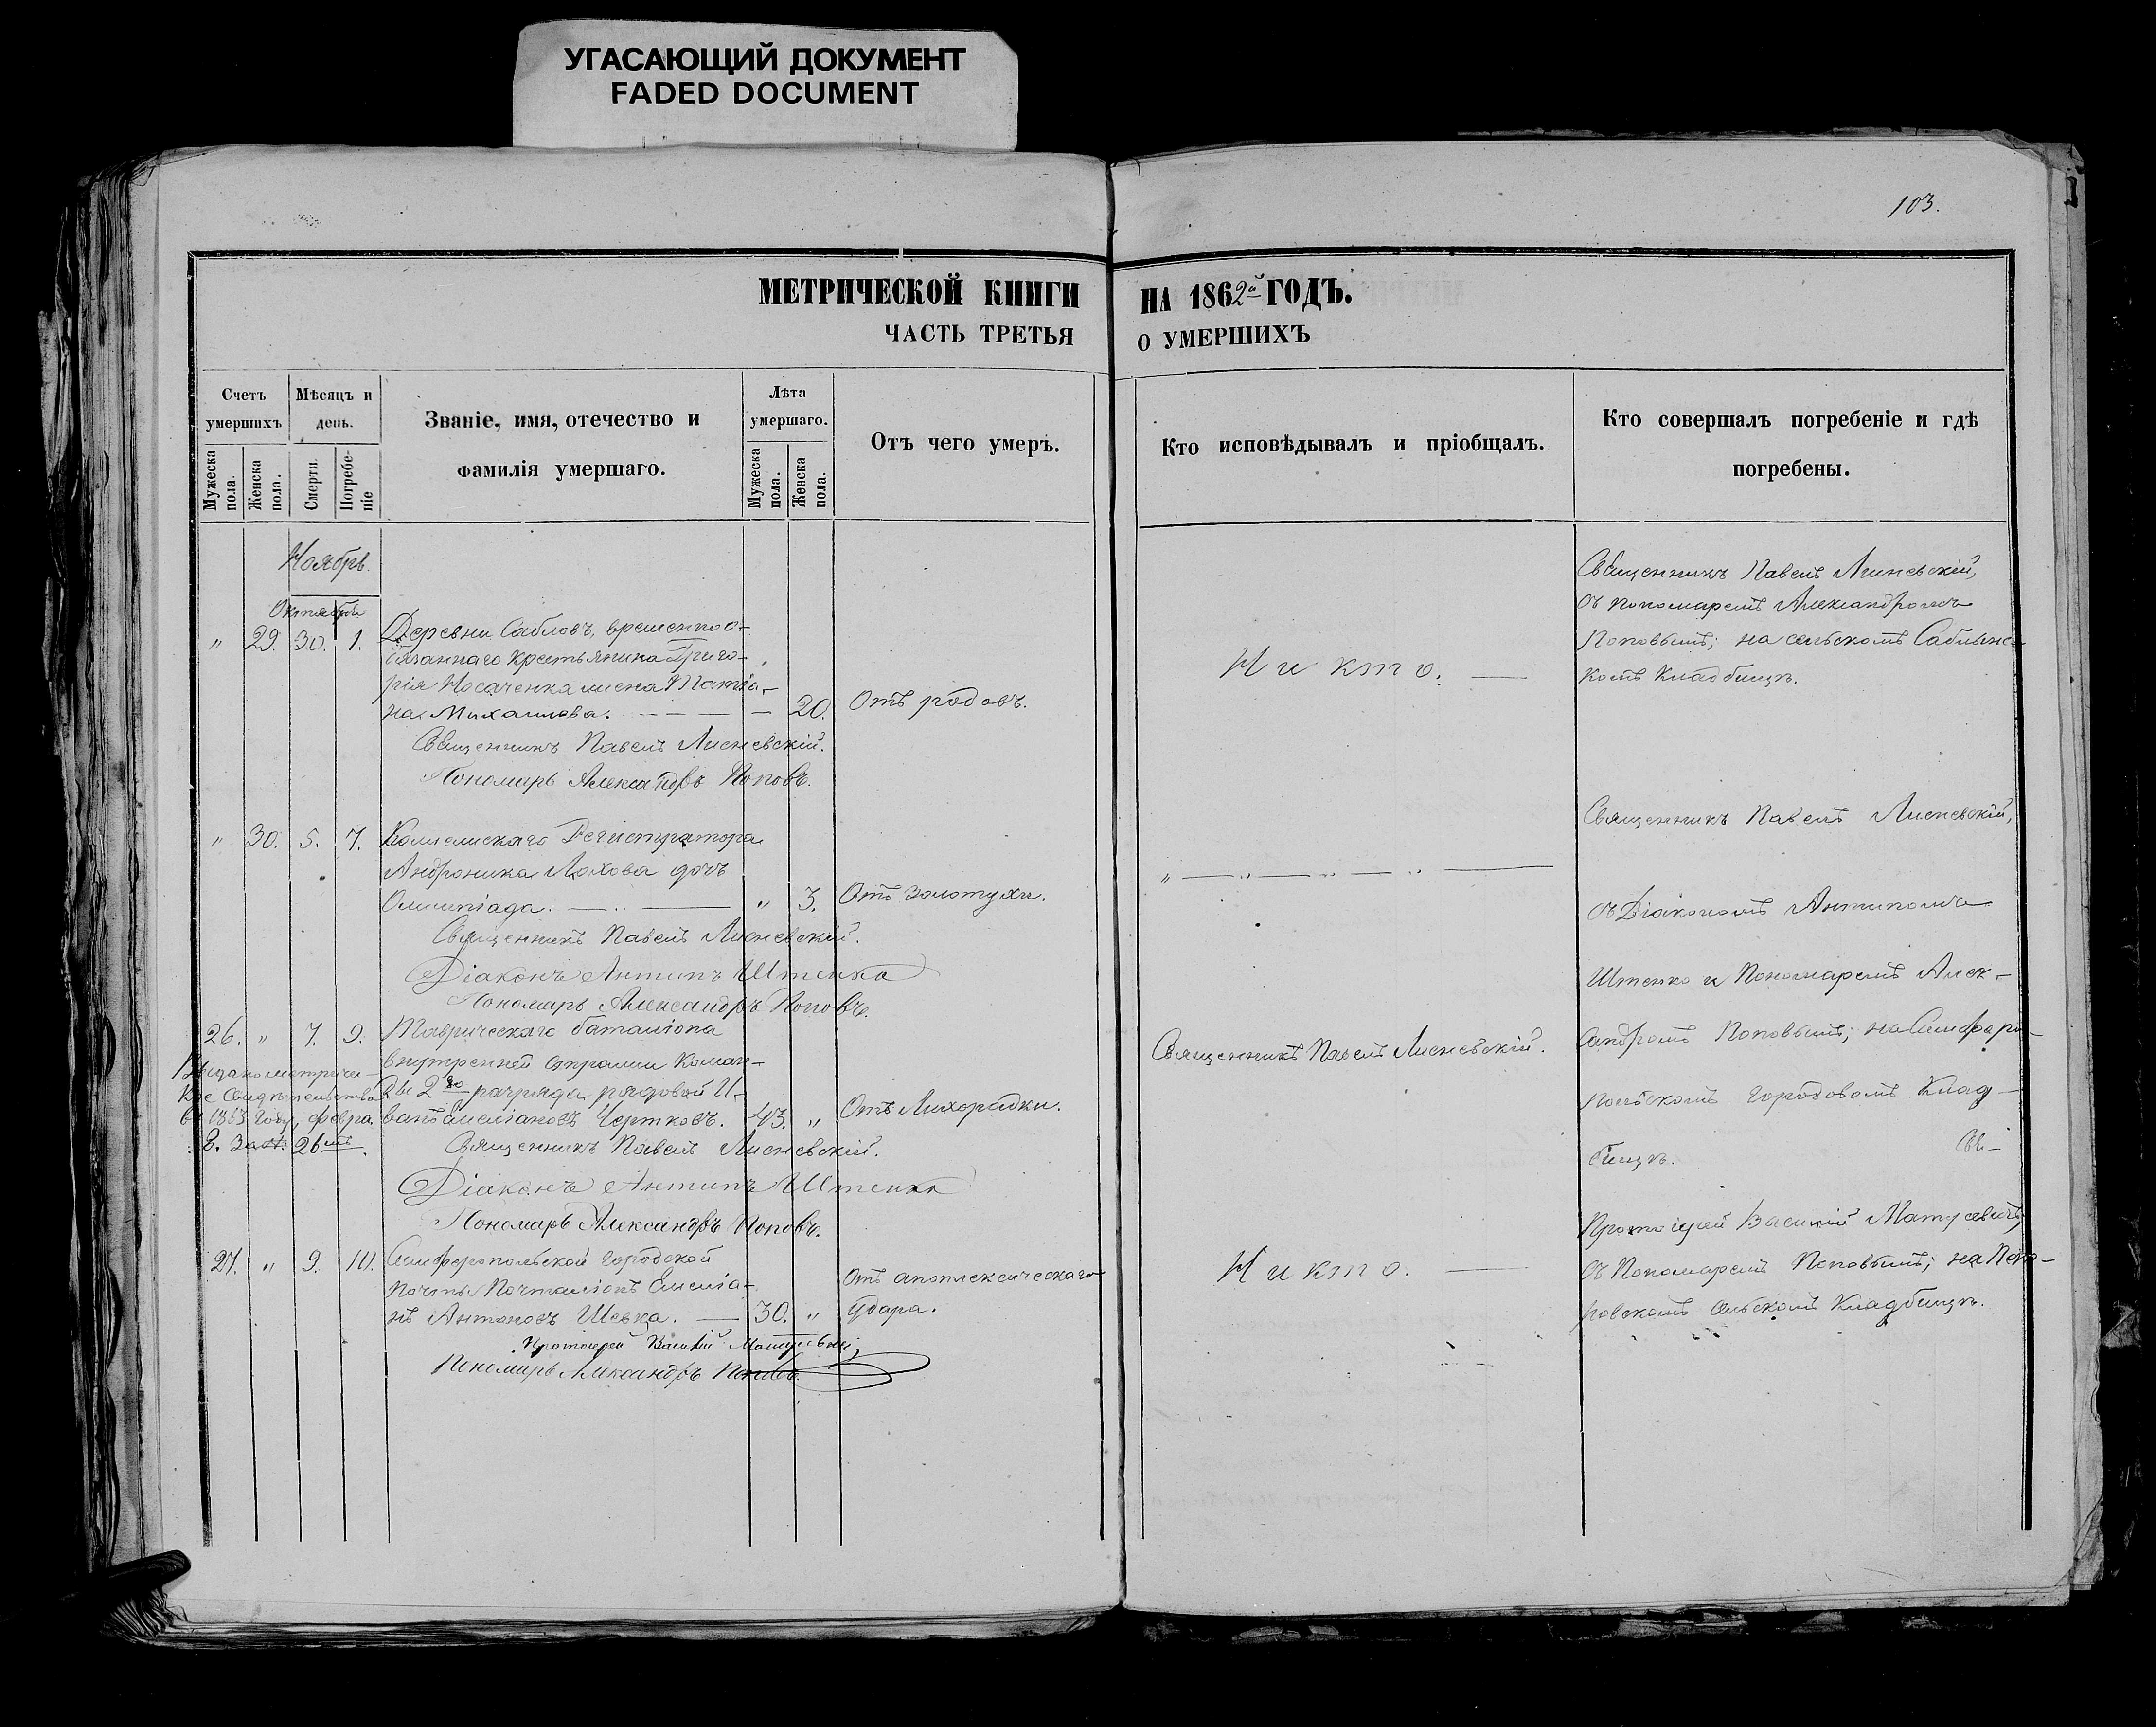 УГАСАЮЩИЙ ДОКУМЕНТ
FADED DOCUMENT
103.
МЕТРИЧЕСКОЙ КНИГИ НА 1862й ГОДЪ.
ЧАСТЬ ТРЕТЬЯ О УМЕРШИХЪ
Счетъ умершихъ
Мужеска пола.
Женска пола.
Мѣсяцъ и день.
Смерти.
Погребеніе
Званіе, имя, отечество и
фамилія умершаго.
Лѣта умершаго.
Мужеска пола.
Женска пола.
Отъ чего умеръ.
Кто исповѣдывалъ и пріобщалъ.
Кто совершалъ погребеніе и гдѣ
погребены.
Ноябрь.
Октября
" 29. 30. 1. Деревни Сабловъ, временноо-
бязаннаго крестьянина Григо-
рія Носаченка жена Татіа-
на Михаилова. — — — 20. Отъ родовъ.
Священникъ Павелъ Лисневскій.
Пономарь Александръ Поповъ.
Никто. —
Священникъ Павелъ Лисневскій,
съ пономаремъ Александромъ
Поповымъ; на сельскомъ Саблынс-
комъ кладбищѣ.
" 30. 5. 7. Коллежскаго Регистратора
Андроника Лохова дочь
Олимпіада. — " — " 3. Отъ золотухи.
Священникъ Павелъ Лисневскій.
Діаконъ Антипъ Штенко
Пономарь Александръ Поповъ.
" — " — " — " —
Священникъ Павелъ Лисневскій,
съ Діакономъ Антипомъ
Штенко и Пономаремъ Алек-
сандромъ Поповымъ; на Симферо-
польскомъ городовомъ клад-
бищѣ.
26. " 7. 9. Таврическаго баталіона
внутренней стражи коман-
ды 2го разряда рядовой И-
ванъ Емеліановъ Чертковъ. 43. " Отъ Лихорадки.
Выдано метричес-
кое свидѣтельство
въ 1863 году, февра.
8. за № 26мъ.
Священникъ Павелъ Лисневскій.
Діаконъ Антипъ Штенко
Пономарь Александръ Поповъ.
Священникъ Павелъ Лисневскій.
27. " 9. 10. Симферопольской городской
почты Почталіонъ Емеліа-
нъ Антоновъ Шевца. — 30. " Отъ апоплексическаго
удара.
Протоіерей Василій
Пономарь Александръ Поповъ.
Никто. —
Протоіерей Василій
съ Пономаремъ Поповымъ; на Пет-
ровскомъ сельскомъ кладбищѣ.